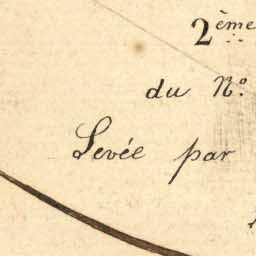 2ème
du N.º
Levée par